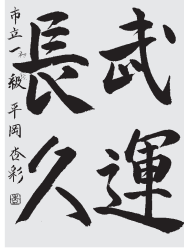 武運
長久
市立一 級 平岡杏彩